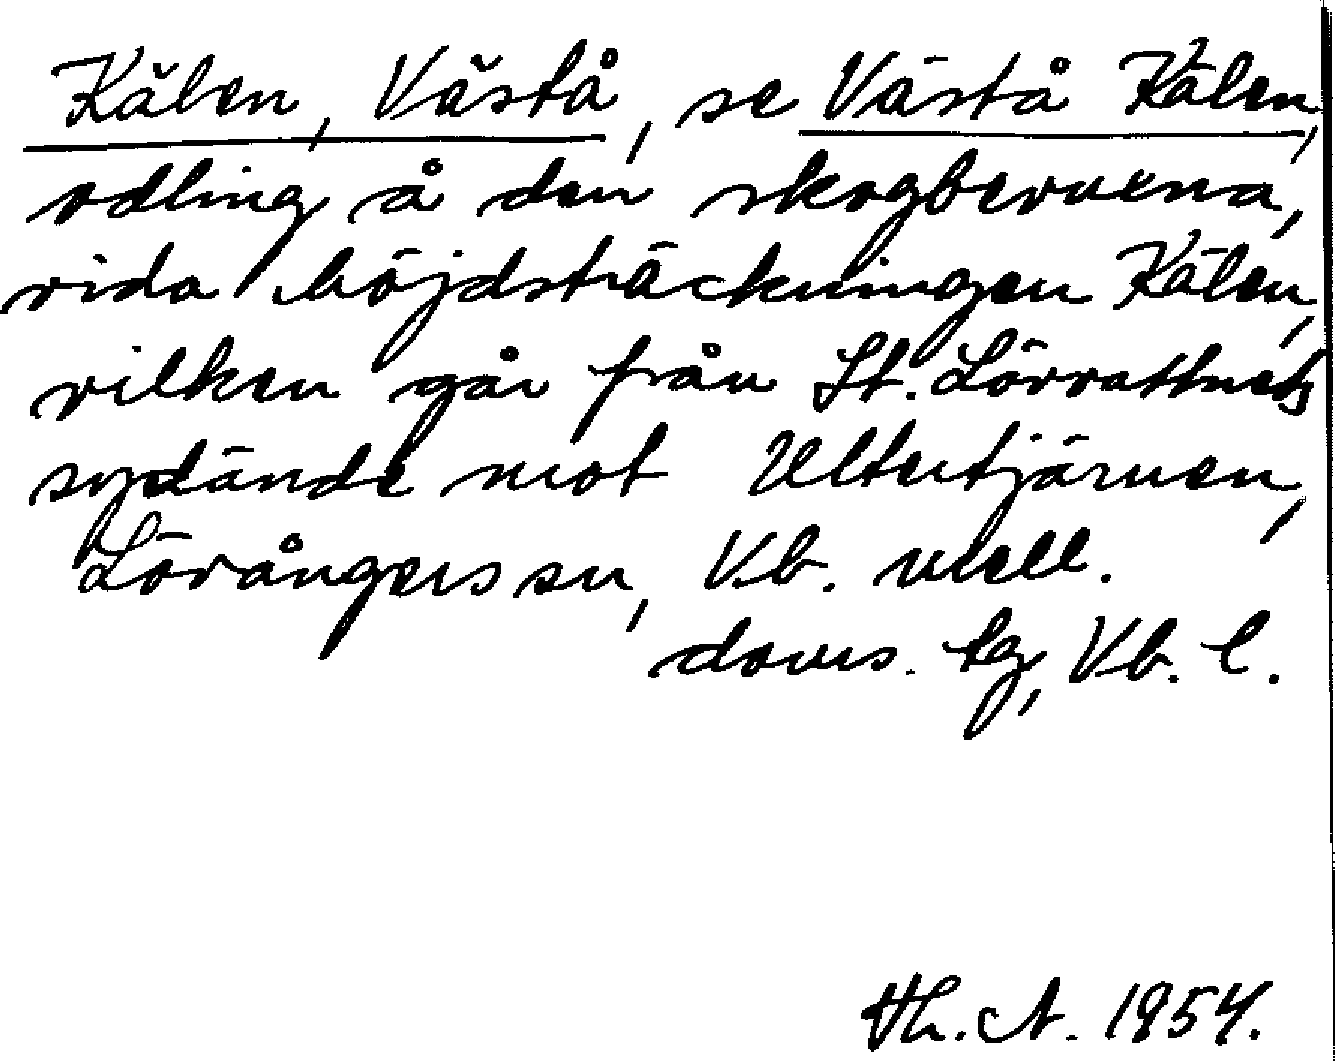 Kälen, Västå, se Västå Kälen,
odling å den skogbevuxna,
vida höjdsträckningen Kälen,
vilken går från St. Lövvattnets
sydände mot Uttertjärnen,
Lövångers sn, Vb. mell.
doms. tg, Vb. l.
Th. A. 1954.